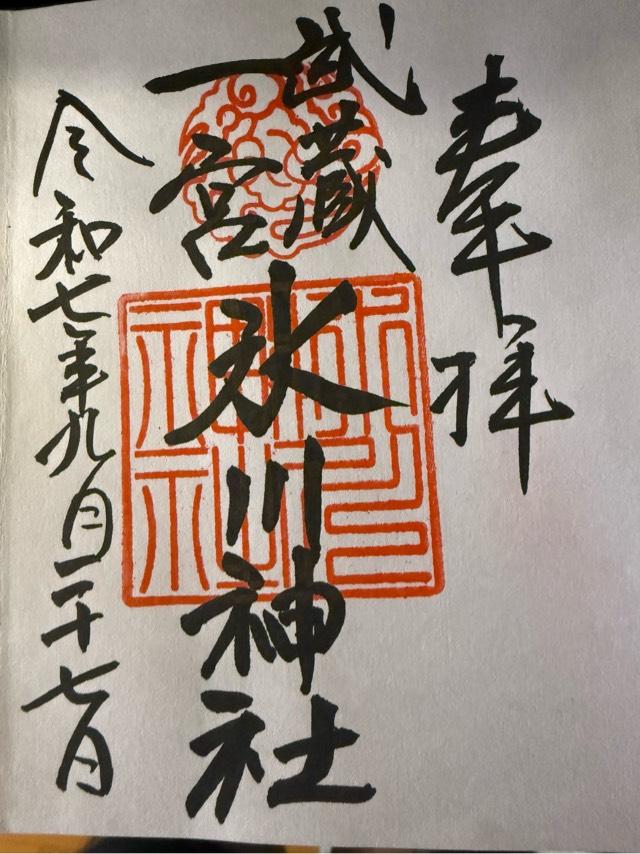 奉拝
武蔵
一宮
氷川神社
氷川
神社
令和七年九月二十七日